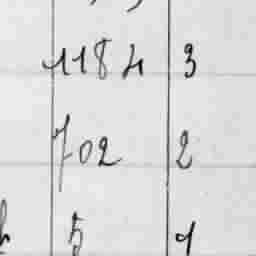 1184 3
702 2
5 1